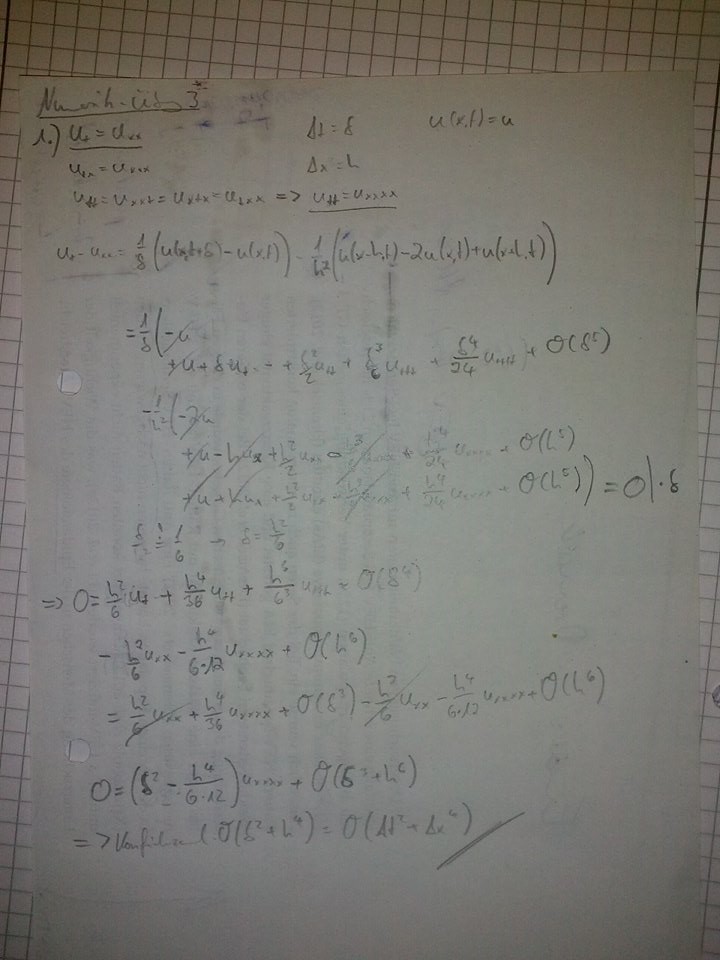 3
1.) u_t = u_xx Δt = δ u(x,t) = u
u_tx = u_xxx Δx = h
u_tt = u_xxt = u_xtx = u_txx => u_tt = u_xxxx
u_t - u_xx = 1/δ (u(x,t+δ) - u(x,t)) - 1/h² (u(x-h,t) - 2u(x,t) + u(x+h,t))
= 1/δ (-u
+u + δ u_t + δ²/2 u_tt + δ³/6 u_ttt + δ⁴/24 u_tttt + O(δ⁵)
- 1/h² (-2u
+u - h u_x + h²/2 u_xx - h³/6 u_xxx + h⁴/24 u_xxxx + O(h⁵)
+u + h u_x + h²/2 u_xx + h³/6 u_xxx + h⁴/24 u_xxxx + O(h⁵)) = 0 | · δ
δ/h² = 1/6 → δ = h²/6
=> 0 = h²/6 u_t + h⁴/36 u_tt + h⁶/6³ u_ttt + O(δ⁴)
- h²/6 u_xx - h⁴/6·12 u_xxxx + O(h⁶)
= h²/6 u_xx + h⁴/36 u_xxxx + O(δ³) - h²/6 u_xx - h⁴/6·12 u_xxxx + O(h⁶)
0 = (δ² - h⁴/6·12) u_xxxx + O(δ³ + h⁶)
=> O(δ² + h⁴) = O(Δt² + Δx⁴)